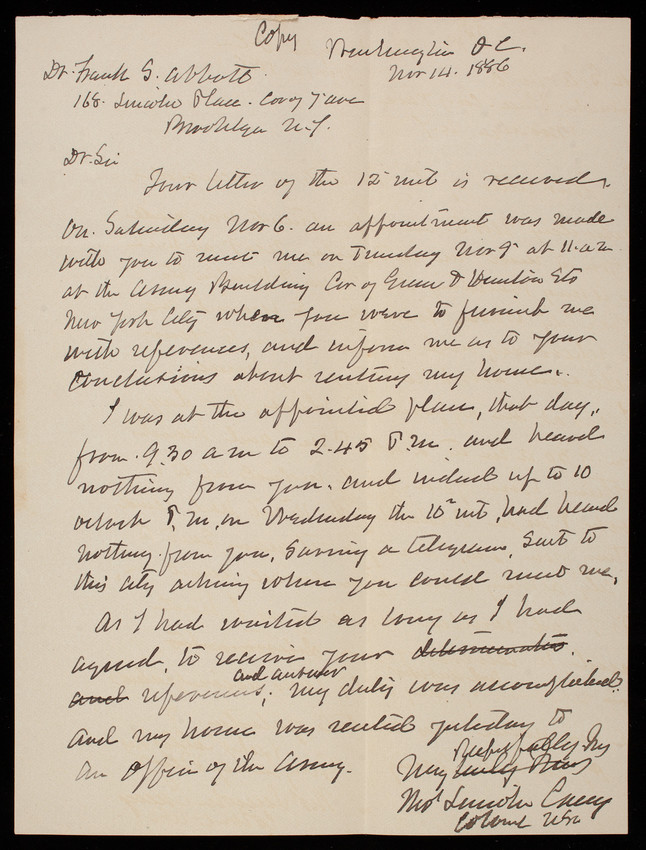 Copy
Washington D.C.
Nov 14. 1886
Dr. Frank G. Abbott
168. Lincoln Place. Cor of 7 ave
Brooklyn N.Y.
Dr. Sir
Your letter of the 12 inst is received.
On. Saturday Nov 6. an appointment was made
with you to meet me on Tuesday Nov 9th at 11. a.m
at the Army Building Cor of Green & Houston Sts
New York City where you were to furnish me
with references, and inform me as to your
conclusions about renting my home.
I was at the appointed place, that day,
from 9.30 a m to 2.45 P.m. and heard
nothing from you. and indeed up to 10
oclock P.m, on Wednesday the 10th inst, had heard
nothing from you, saving a telegram, sent to
this city asking where you could meet me.
As I had waited as long as I had
agreed, to receive your determination.
and references, and answer; my duty was accomplished.
and my home was rented yesterday to
an Officer of the Army.
Respectfully Yrs
Very truly Yours
Thos Lincoln Casey
Colonel USA